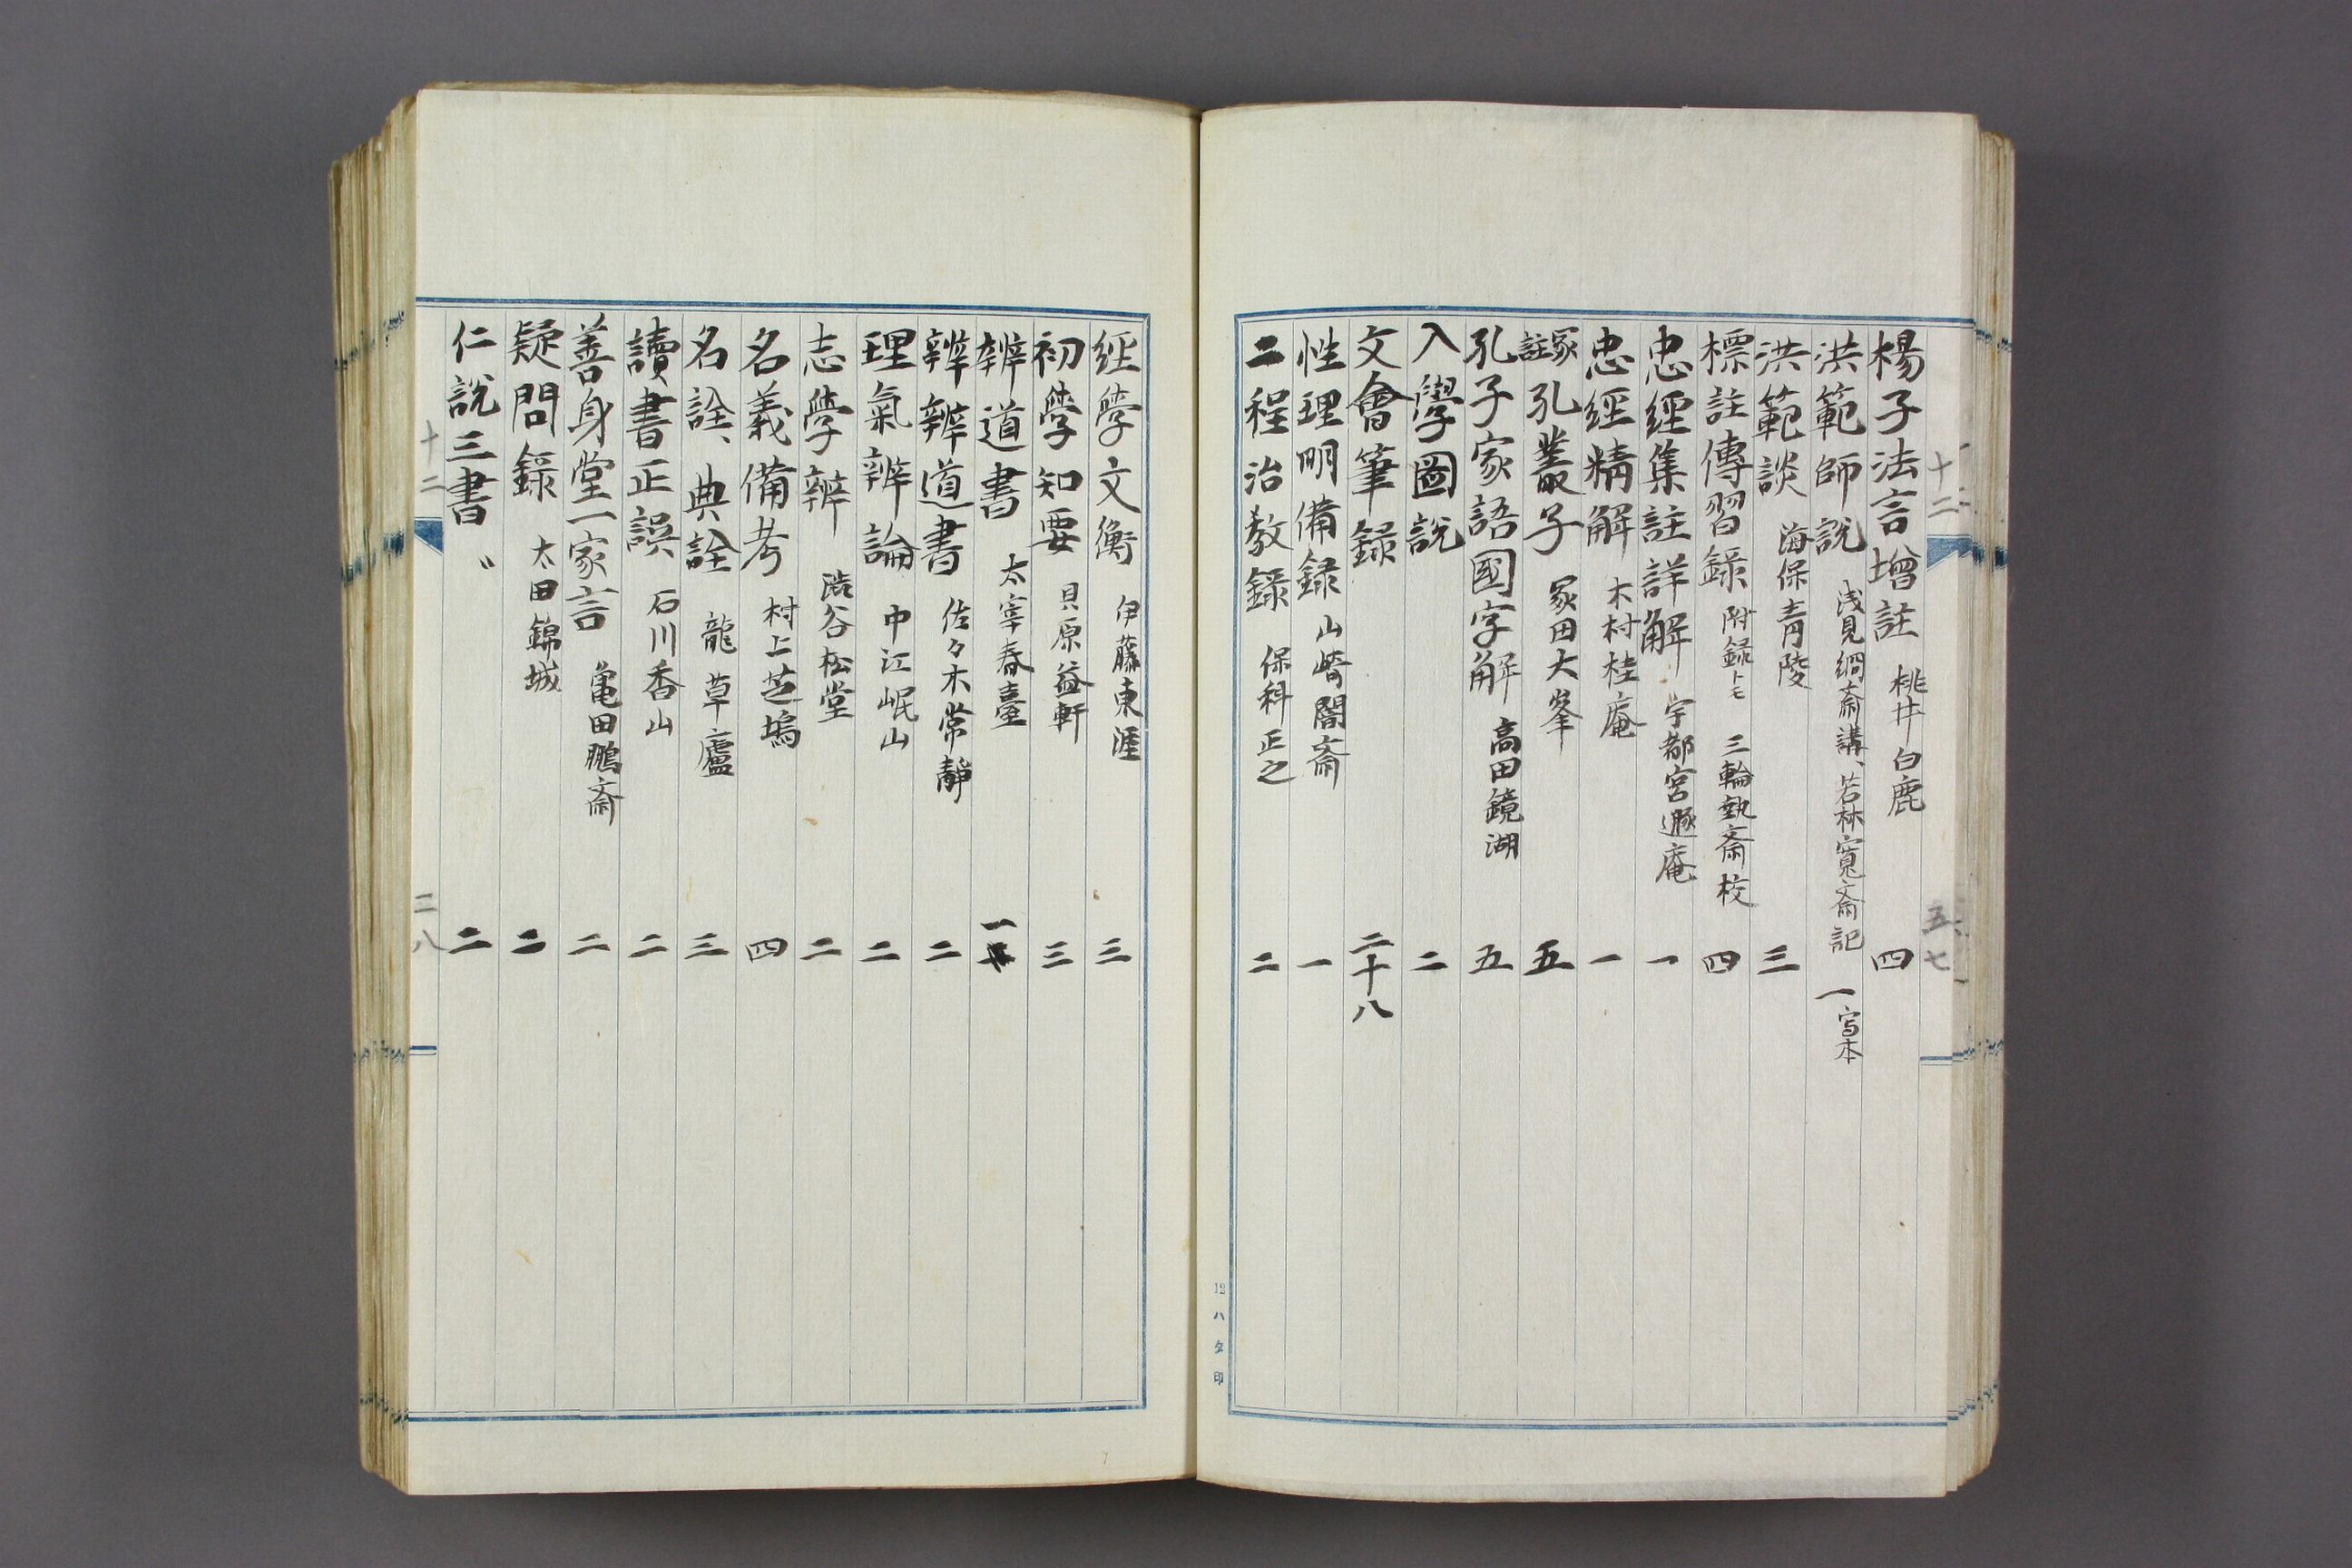 楊子法言增註 桃井白鹿 四
洪範師說 浅見絅斎講、若林寬斎記 一写本
洪範談 海保青陵 三
標註傳習録 附録トモ 三輪執斎校 四
忠經集註詳解 宇都宮遯庵 一
忠經精解 木村桂庵 一
冢註孔叢子 冢田大峯 五
孔子家語國字解 高田鏡湖 五
入學圖說 二
文會筆録 二十八
性理明備録 山崎闇斎 一
二程治教録 保科正之 二
12 ハタ印
十二
五七
經學文衡 伊藤東涯 三
初學知要 貝原益軒 三
辨道書 太宰春臺 一
辨辨道書 佐々木常靜 二
理氣辨論 中江岷山 二
志學辨 澁谷松堂 二
名義備考 村上芝塢 四
名詮、典詮 龍草廬 三
讀書正誤 石川香山 二
善身堂一家言 亀田鵬斎 二
疑問錄 太田錦城 二
仁說三書 〃 二
十二
二八